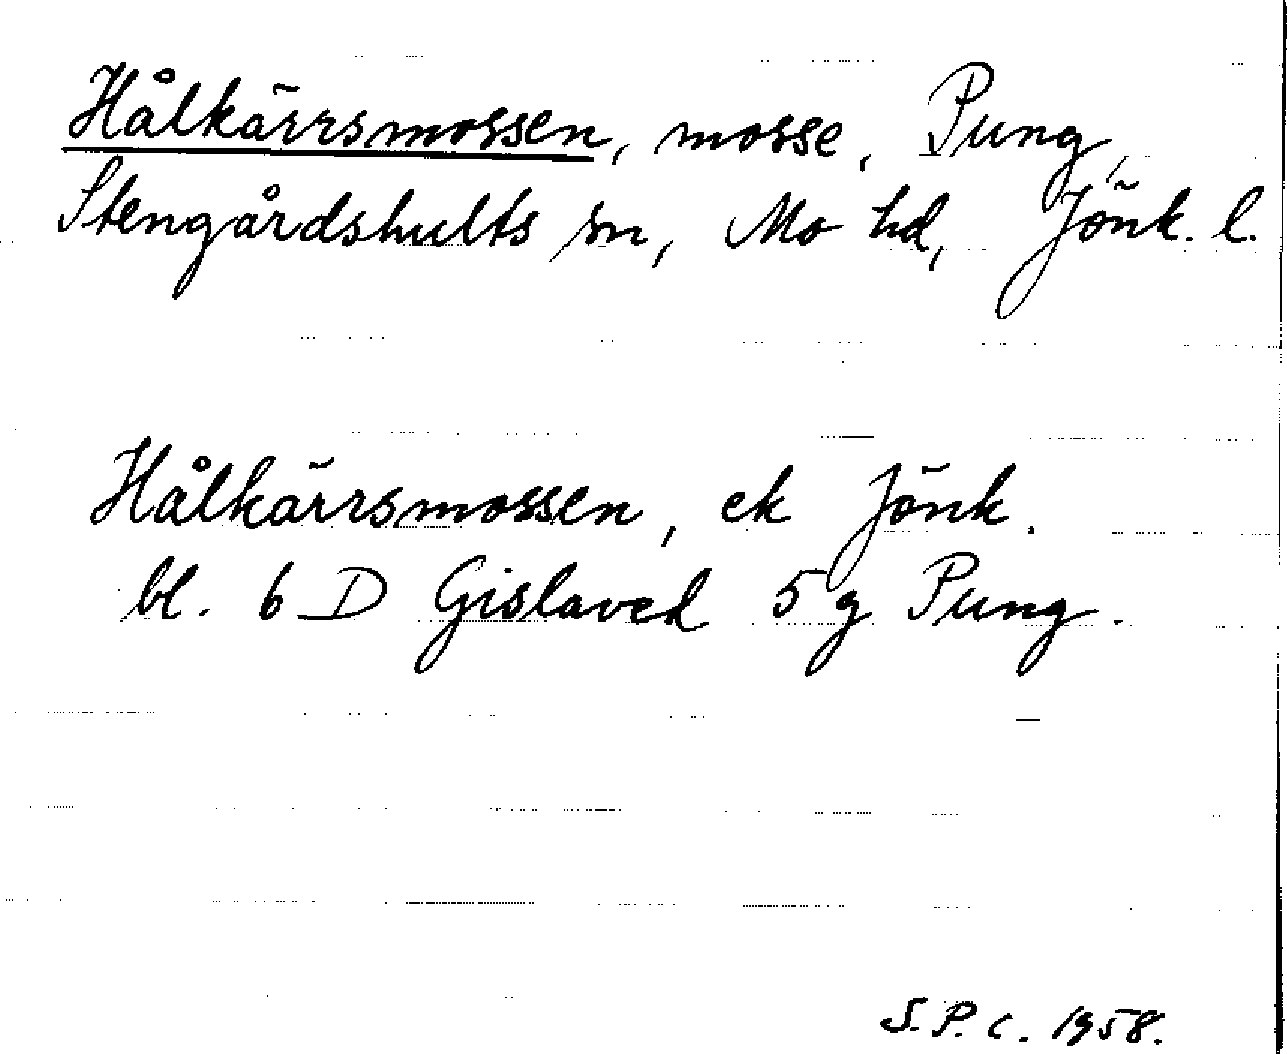 Hålkärrsmossen, mosse, Pung,
Stengårdshults sn, Mo hd, Jönk. l.
Hålkärrsmossen, ek Jönk.
bl. 6 D Gislaved 5 g Pung.
S.P.C. 1958.